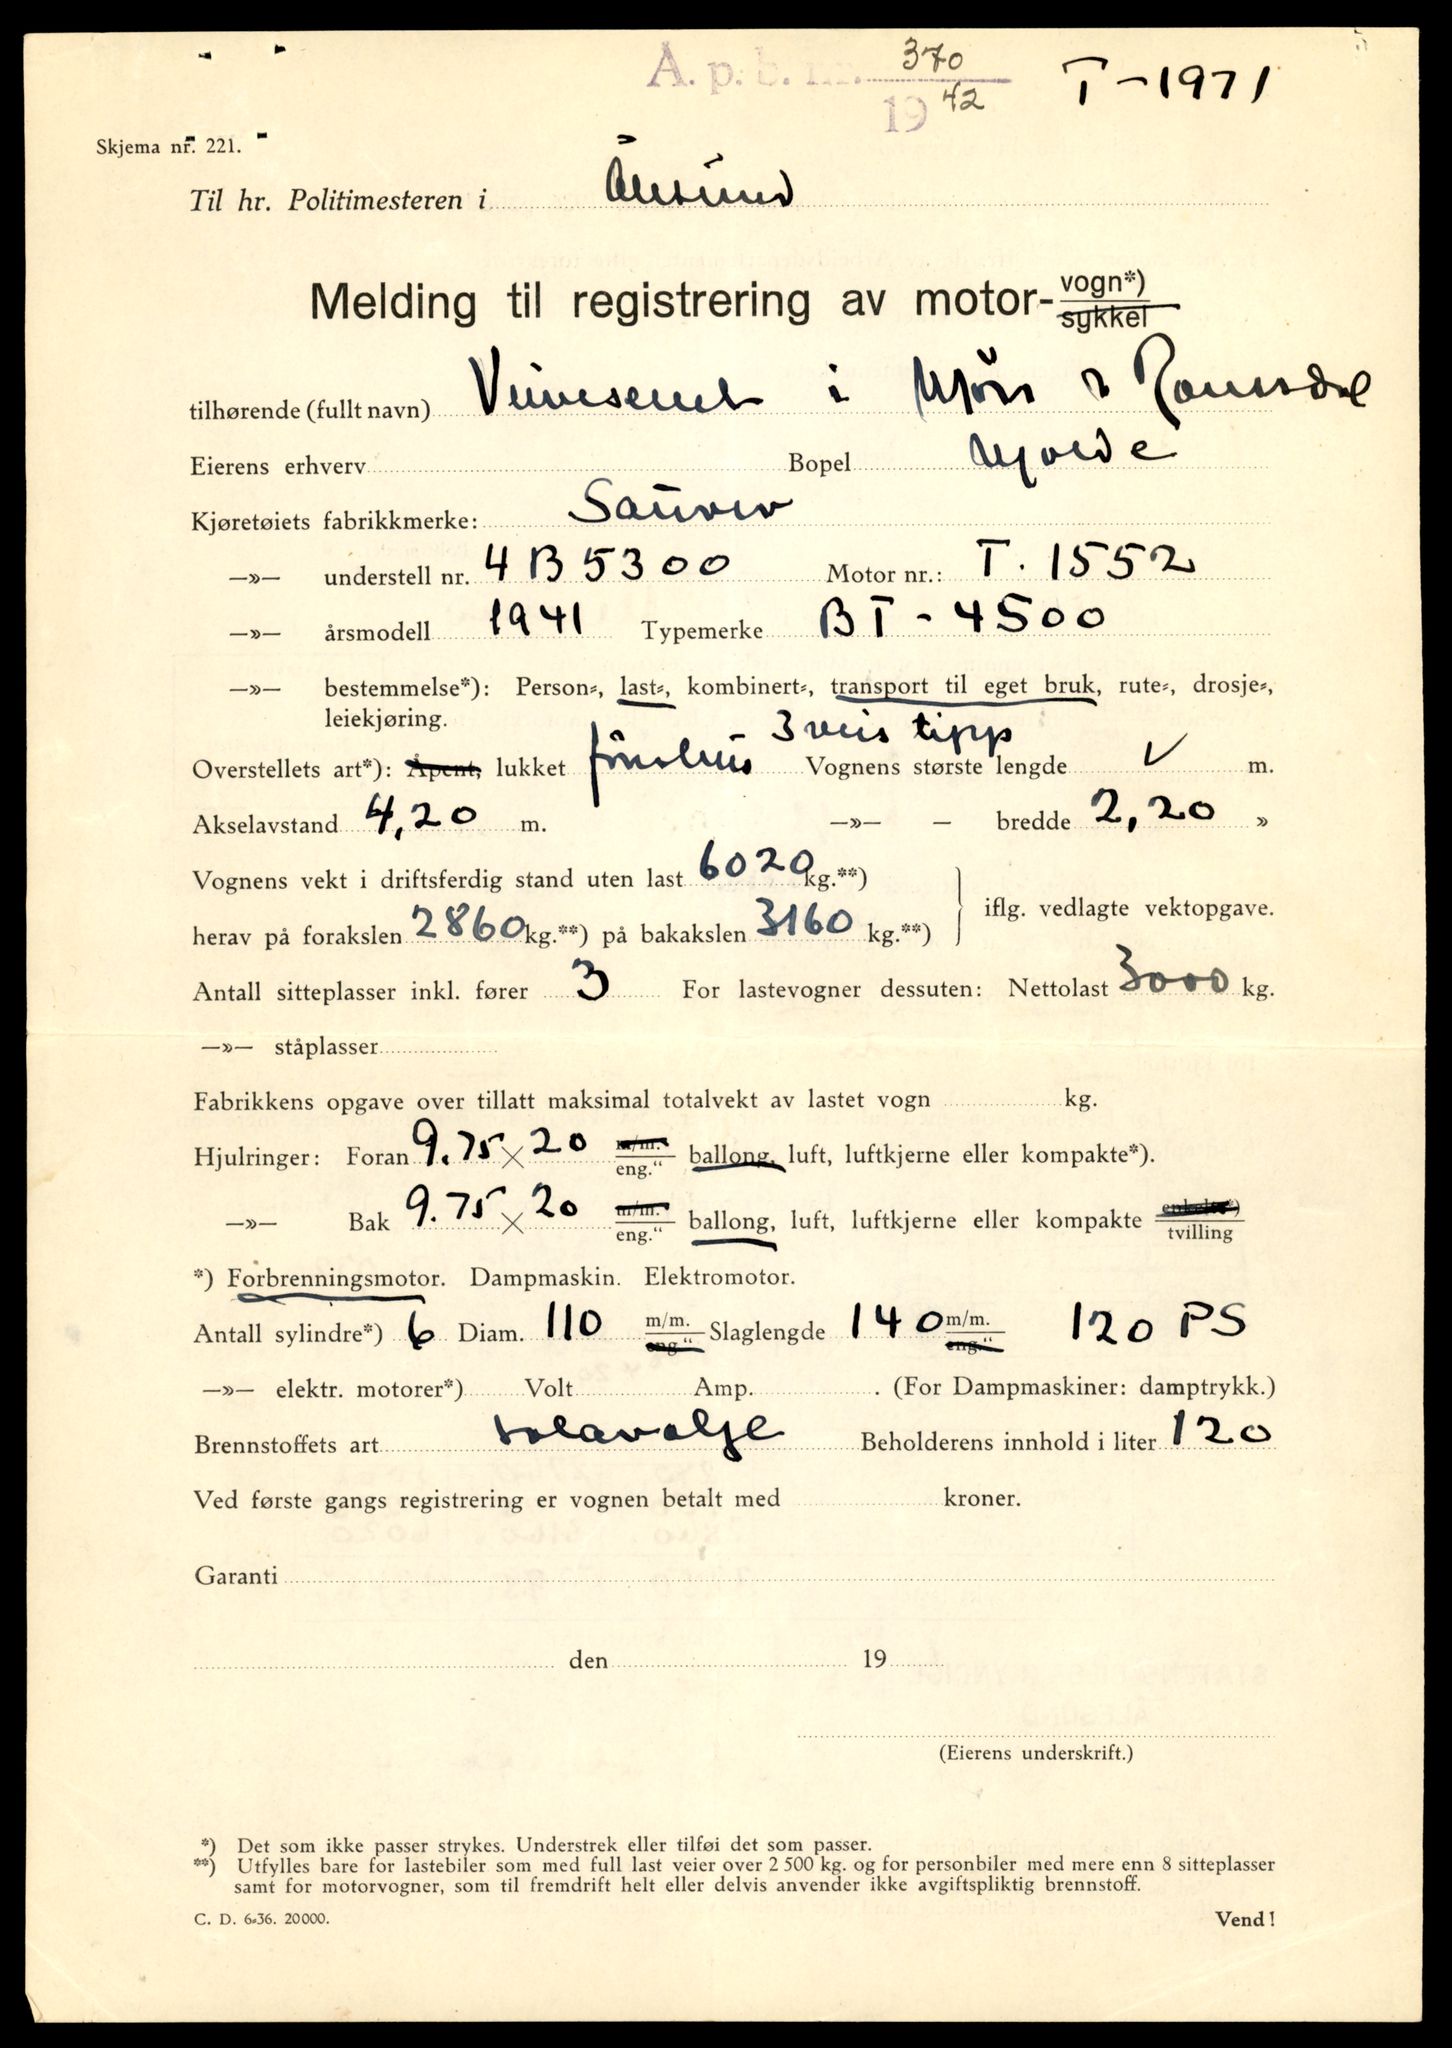 A. p. b. nr. 370
1942
T-1971
Skjema nr. 221.
Til hr. Politimesteren i Ålesund
Melding til registrering av motor-vogn*)
sykkel
tilhørende (fullt navn) Veivesenet i Møre & Romsdal
Eierens erhverv Bopel Molde
Kjøretøiets fabrikkmerke: Saurer
—»— understell nr. 4 B 5300 Motor nr.: T. 1552
—»— årsmodell 1941 Typemerke BT-4500
—»— bestemmelse*): Person-, last-, kombinert-, transport til eget bruk, rute-, drosje-,
leiekjøring.
3 veis tipp
Overstellets art*): Åpent, lukket førerhus Vognens største lengde m.
Akselavstand 4,20 m. —»— — bredde 2,20 »
Vognens vekt i driftsferdig stand uten last 6020 kg.**)
iflg. vedlagte vektopgave.
herav på forakslen 2860 kg.**) på bakakslen 3160 kg.**)
Antall sitteplasser inkl. fører 3 For lastevogner dessuten: Nettolast 3000 kg.
—»— ståplasser
Fabrikkens opgave over tillatt maksimal totalvekt av lastet vogn kg.
Hjulringer: Foran 9.75 × 20 m/m. eng.“ ballong, luft, luftkjerne eller kompakte*).
—»— Bak 9.75 × 20 m/m. eng.“ ballong, luft, luftkjerne eller kompakte enkelte*) tvilling
*) Forbrenningsmotor. Dampmaskin. Elektromotor.
Antall sylindre*) 6 Diam. 110 m/m. eng.“ Slaglengde 140 m/m. eng.“ 120 PS
—»— elektr. motorer*) Volt Amp. . (For Dampmaskiner: damptrykk.)
Brennstoffets art solarolje Beholderens innhold i liter 120
Ved første gangs registrering er vognen betalt med kroner.
Garanti
den 19
(Eierens underskrift.)
*) Det som ikke passer strykes. Understrek eller tilføi det som passer.
**) Utfylles bare for lastebiler som med full last veier over 2 500 kg. og for personbiler med mere enn 8 sitteplasser
samt for motorvogner, som til fremdrift helt eller delvis anvender ikke avgiftspliktig brennstoff.
C. D. 6-36. 20000.
Vend!